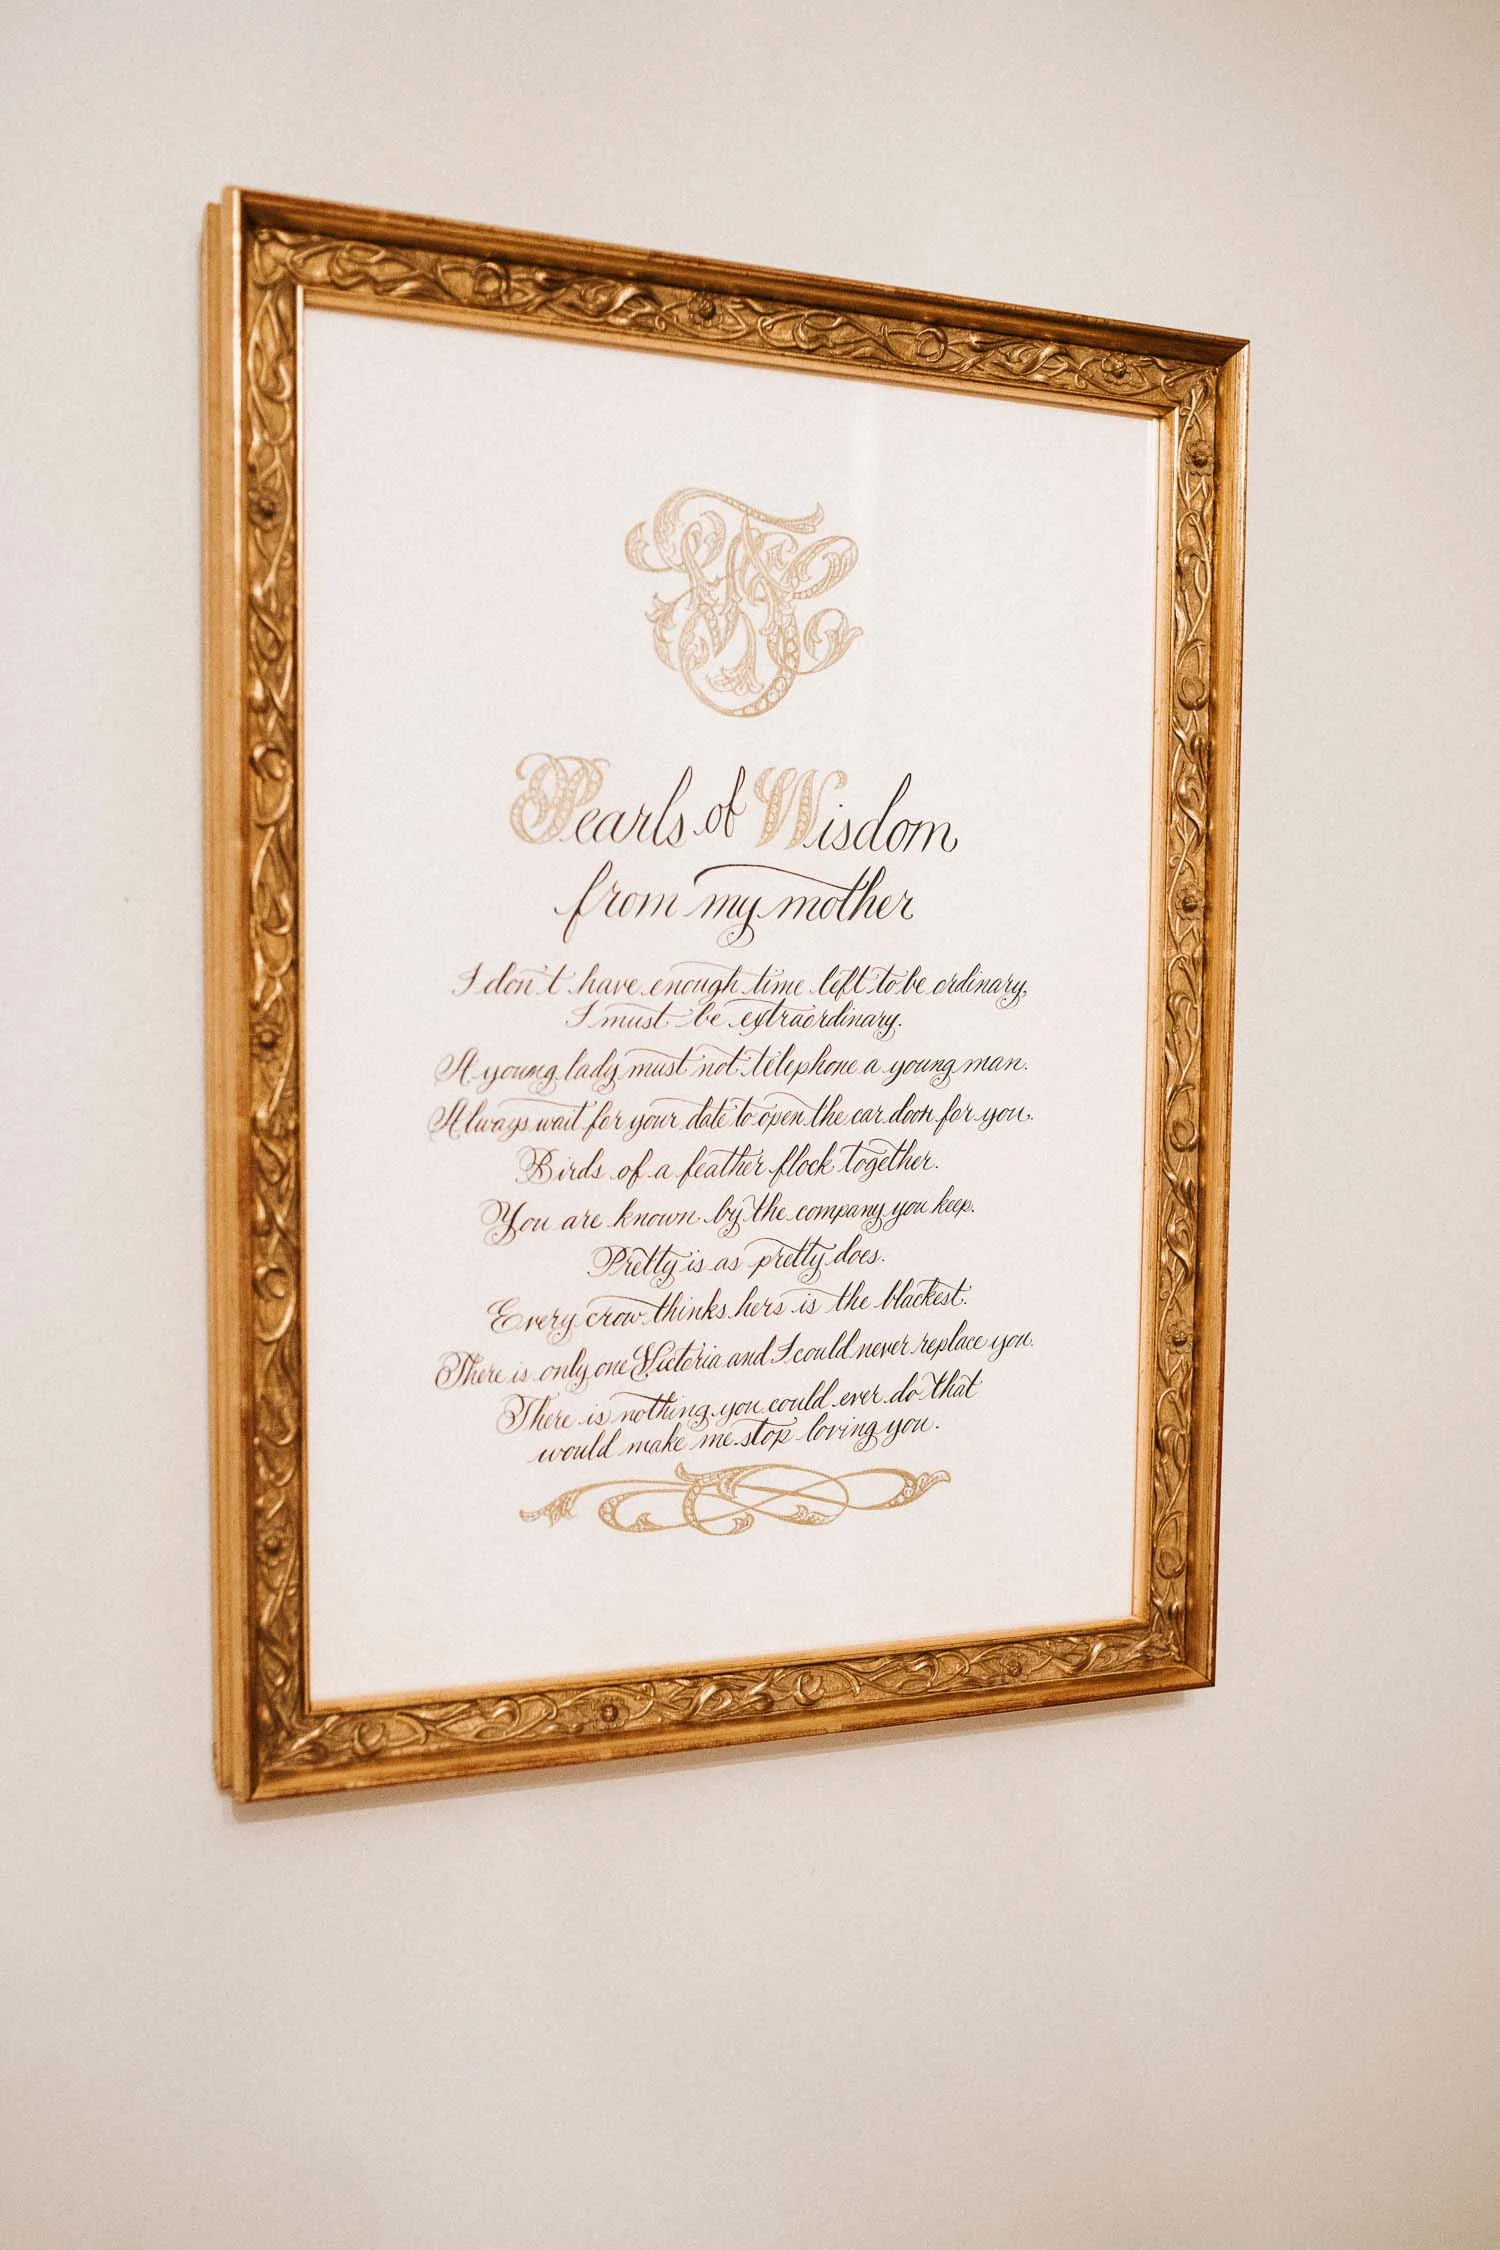 Pearls of Wisdom
from my mother
I don't have enough time left to be ordinary,
I must be extraordinary.
A young lady must not telephone a young man.
Always wait for your date to open the car door for you.
Birds of a feather flock together.
You are known by the company you keep.
Pretty is as pretty does.
Every crow thinks hers is the blackest.
There is only one Victoria and I could never replace you.
There is nothing you could ever do that
would make me stop loving you.